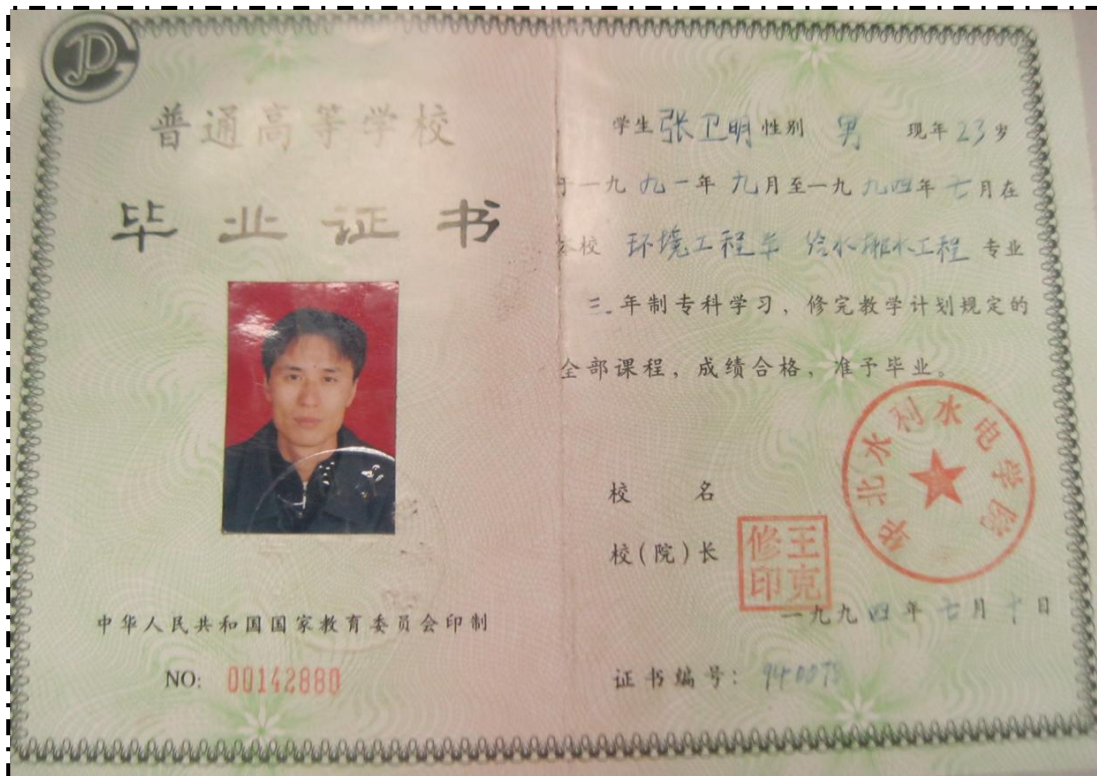 普通高等学校
毕业证书
中华人民共和国国家教育委员会印制
NO: 00142880
学生 张卫明 性别 男 现年 23 岁
于一九九一年九月至一九九四年七月在
本校 环境工程 给水排水工程 专业
三年制专科学习，修完教学计划规定的
全部课程，成绩合格，准予毕业。
华北水利水电学院
校 名
校(院)长
王克修印
一九九四年七月十日
证书编号：